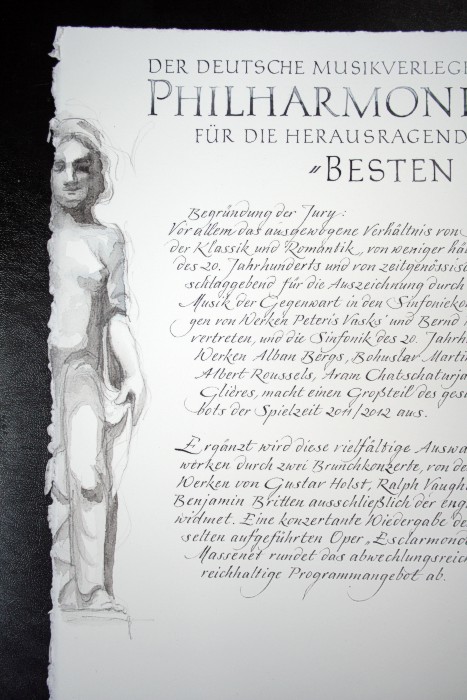 DER DEUTSCHE MUSIKVERLEGE
PHILHARMONI
FÜR DIE HERAUSRAGEND
„BESTEN
Begründung der Jury:
Vor allem das ausgewogene Verhältnis von
der Klassik und Romantik, von weniger hä
des 20. Jahrhunderts und von zeitgenössisc
schlaggebend für die Auszeichnung durch
Musik der Gegenwart in den Sinfonieko
gen von Werken Peteris Vasks' und Bernd
vertreten, und die Sinfonik des 20. Jahrh
Werken Alban Bergs, Bohuslav Martin
Albert Roussels, Aram Chatschaturja
Glières, macht einen Großteil des ges
bots der Spielzeit 2011/2012 aus.
Ergänzt wird diese vielfältige Auswa
werken durch zwei Brunchkonzerte, von de
Werken von Gustav Holst, Ralph Vaugh
Benjamin Britten ausschließlich der eng
widmet. Eine konzertante Wiedergabe de
selten aufgeführten Oper „Esclarmond
Massenet rundet das abwechlungsreich
reichhaltige Programmangebot ab.